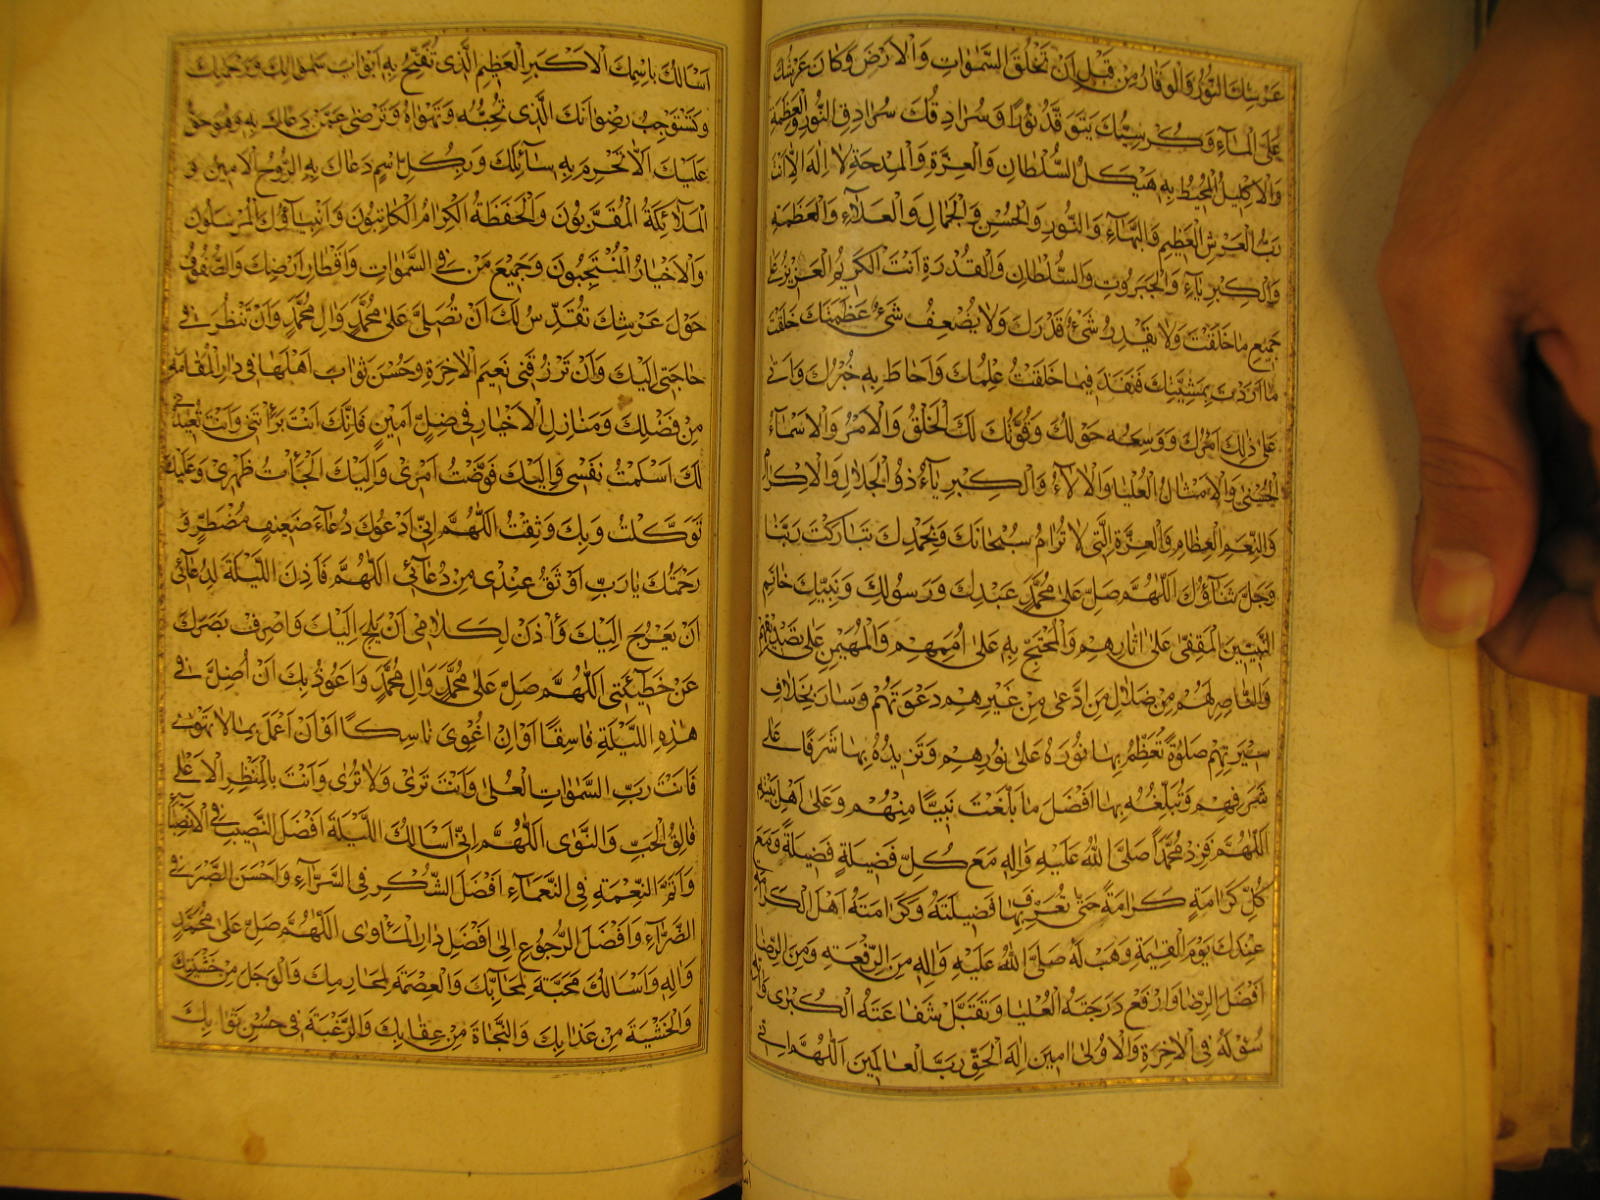 عَرْشِكَ النُّورُ وَالْوَقَارُ مِنْ قَبْلِ اَنْ تَخْلُقَ السَّمٰوَاتِ وَالْاَرْضَ وَكَانَ عَرْشُكَ
عَلَى الْمَاءِ وَكُرْسِيُّكَ يَتَوَقَّدُ نُورًا وَسُرَادِقُكَ سُرَادِقُ النُّورِ وَالْعَظَمَةِ
وَالْاِكْلِيلُ الْمُحِيطُ بِهِ هَيْكَلُ السُّلْطَانِ وَالْعِزَّةِ وَالْمِدْحَةِ لَا اِلٰهَ اِلَّا اَنْتَ
رَبُّ الْعَرْشِ الْعَظِيمِ وَالْبَهَاءِ وَالنُّورِ وَالْحُسْنِ وَالْجَمَالِ وَالْعَلَاءِ وَالْعَظَمَةِ
وَالْكِبْرِيَاءِ وَالْجَبَرُوتِ وَالسُّلْطَانِ وَالْقُدْرَةِ اَنْتَ الْكَرِيمُ الْعَزِيزُ عَلَى
جَمِيعِ مَا خَلَقْتَ وَلَا يَقْدِرُ شَىْءٌ قَدْرَكَ وَلَا يُضْعِفُ شَىْءٌ عَظَمَتَكَ خَلَقْتَ
مَا اَرَدْتَ بِمَشِيَّتِكَ فَنَفَذَ فِيمَا خَلَقْتَ عِلْمُكَ وَاَحَاطَ بِهِ خُبْرُكَ وَاَتٰى
عَلٰى ذٰلِكَ اَمْرُكَ وَوَسِعَهُ حَوْلُكَ وَقُوَّتُكَ لَكَ الْخَلْقُ وَالْاَمْرُ وَالْاَسْمَاءُ
الْحُسْنٰى وَالْاَمْثَالُ الْعُلْيَا وَالْاٰلَاءُ وَالْكِبْرِيَاءُ ذُو الْجَلَالِ وَالْاِكْرَامِ
وَالنِّعَمِ الْعِظَامِ وَالْعِزَّةِ الَّتِى لَا تُرَامُ سُبْحَانَكَ وَبِحَمْدِكَ تَبَارَكْتَ رَبَّنَا
وَجَلَّ ثَنَاؤُكَ اَللّٰهُمَّ صَلِّ عَلٰى مُحَمَّدٍ عَبْدِكَ وَرَسُولِكَ وَنَبِيِّكَ خَاتَمِ
النَّبِيِّينَ الْمُقَفّٰى عَلٰى اٰثَارِهِمْ وَالْمُحْتَجِّ بِهِ عَلٰى اُمَمِهِمْ وَالْمُهَيْمِنِ عَلٰى تَصْدِيقِهِمْ
وَالنَّاصِرِ لَهُمْ مِنْ ضَلَالِ مَنِ ادَّعٰى مِنْ غَيْرِهِمْ دَعْوَتَهُمْ وَسَارَ بِخِلَافِ
سِيرَتِهِمْ صَلٰوةً تُعَظِّمُ بِهَا نُورَهُ عَلٰى نُورِهِمْ وَتَزِيدُهُ بِهَا شَرَفًا عَلٰى
شَرَفِهِمْ وَتُبَلِّغُهُ بِهَا اَفْضَلَ مَا بَلَّغْتَ نَبِيًّا مِنْهُمْ وَعَلٰى اَهْلِ بَيْتِهِ
اَللّٰهُمَّ فَزِدْ مُحَمَّدًا صَلَّى اللّٰهُ عَلَيْهِ وَاٰلِهِ مَعَ كُلِّ فَضِيلَةٍ فَضِيلَةً وَمَعَ
كُلِّ كَرَامَةٍ كَرَامَةً حَتّٰى تُعَرِّفَ بِهَا فَضِيلَتَهُ وَكَرَامَتَهُ اَهْلَ الْكَرَامَةِ
عِنْدَكَ يَوْمَ الْقِيٰمَةِ وَهَبْ لَهُ صَلَّى اللّٰهُ عَلَيْهِ وَاٰلِهِ مِنَ الرِّفْعَةِ وَمِنَ الرِّضَا
اَفْضَلَ الرِّضَا وَارْفَعْ دَرَجَتَهُ الْعُلْيَا وَتَقَبَّلْ شَفَاعَتَهُ الْكُبْرٰى وَاٰتِهِ
سُؤْلَهُ فِى الْاٰخِرَةِ وَالْاُولٰى اٰمِينَ اِلٰهَ الْحَقِّ رَبَّ الْعَالَمِينَ اَللّٰهُمَّ اِنِّى
اَسْاَلُكَ بِاسْمِكَ الْاَكْبَرِ الْعَظِيمِ الَّذِى تُفَتَّحُ بِهِ اَبْوَابُ سَمٰوَاتِكَ وَرَحْمَتِكَ
وَتَسْتَوْجِبُ رِضْوَانَكَ الَّذِى تُحِبُّهُ وَتَهْوَاهُ وَتَرْضٰى عَمَّنْ دَعَاكَ بِهِ وَهُوَ حَقٌّ
عَلَيْكَ اَلَّا تَحْرِمَ بِهِ سَائِلَكَ وَبِكُلِّ اسْمٍ دَعَاكَ بِهِ الرُّوحُ الْاَمِينُ وَ
الْمَلَائِكَةُ الْمُقَرَّبُونَ وَالْحَفَظَةُ الْكِرَامُ الْكَاتِبُونَ وَاَنْبِيَاؤُكَ الْمُرْسَلُونَ
وَالْاَخْيَارُ الْمُنْتَجَبُونَ وَجَمِيعُ مَنْ فِى السَّمٰوَاتِ وَاَقْطَارِ اَرْضِكَ وَالصُّفُوفُ
حَوْلَ عَرْشِكَ تُقَدِّسُ لَكَ اَنْ تُصَلِّىَ عَلٰى مُحَمَّدٍ وَاٰلِ مُحَمَّدٍ وَاَنْ تَنْظُرَ فِى
حَاجَتِى اِلَيْكَ وَاَنْ تَرْزُقَنِى نَعِيمَ الْاٰخِرَةِ وَحُسْنَ ثَوَابِ اَهْلِهَا فِى دَارِ الْمُقَامَةِ
مِنْ فَضْلِكَ وَمَنَازِلِ الْاَخْيَارِ فِى ضِلٍّ اَمِينٍ فَاِنَّكَ اَنْتَ بَرَاْتَنِى وَاَنْتَ تُعِيدُنِى
لَكَ اَسْلَمْتُ نَفْسِى وَاِلَيْكَ فَوَّضْتُ اَمْرِى وَاِلَيْكَ اَلْجَاْتُ ظَهْرِى وَعَلَيْكَ
تَوَكَّلْتُ وَبِكَ وَثِقْتُ اَللّٰهُمَّ اِنِّى اَدْعُوكَ دُعَاءَ ضَعِيفٍ مُضْطَرٍّ وَ
رَحْمَتُكَ يَا رَبِّ اَوْثَقُ عِنْدِى مِنْ دُعَائِى اَللّٰهُمَّ فَاْذَنِ اللَّيْلَةَ لِدُعَائِى
اَنْ يَعْرُجَ اِلَيْكَ وَاْذَنْ لِكَلَامِى اَنْ يَلِجَ اِلَيْكَ وَاصْرِفْ بَصَرَكَ
عَنْ خَطِيئَتِى اَللّٰهُمَّ صَلِّ عَلٰى مُحَمَّدٍ وَاٰلِ مُحَمَّدٍ وَاَعُوذُ بِكَ اَنْ اَضِلَّ فِى
هٰذِهِ اللَّيْلَةِ فَاسِقًا اَوْ اَنْ اُغْوِىَ نَاسِكًا اَوْ اَنْ اَعْمَلَ بِمَا لَا تَهْوٰى
فَاَنْتَ رَبُّ السَّمٰوَاتِ الْعُلٰى وَاَنْتَ تَرٰى وَلَا تُرٰى وَاَنْتَ بِالْمَنْظَرِ الْاَعْلٰى
فَالِقُ الْحَبِّ وَالنَّوٰى اَللّٰهُمَّ اِنِّى اَسْاَلُكَ اللَّيْلَةَ اَفْضَلَ النَّصِيبِ فِى الْاَنْصِبَاءِ
وَاَتَمَّ النِّعْمَةِ فِى النَّعْمَاءِ اَفْضَلَ الشُّكْرِ فِى السَّرَّاءِ وَاَحْسَنَ الصَّبْرِ فِى
الضَّرَّاءِ وَاَفْضَلَ الرُّجُوعِ اِلٰى اَفْضَلِ دَارِ الْمَاْوٰى اَللّٰهُمَّ صَلِّ عَلٰى مُحَمَّدٍ
وَاٰلِهِ وَاَسْاَلُكَ مَحَبَّةً لِمَحَابِّكَ وَالْعِصْمَةَ لِمَحَارِمِكَ وَالْوَجَلَ مِنْ خَشْيَتِكَ
وَالْخَشْيَةَ مِنْ عَذَابِكَ وَالنَّجَاةَ مِنْ عِقَابِكَ وَالرَّغْبَةَ فِى حُسْنِ ثَوَابِكَ